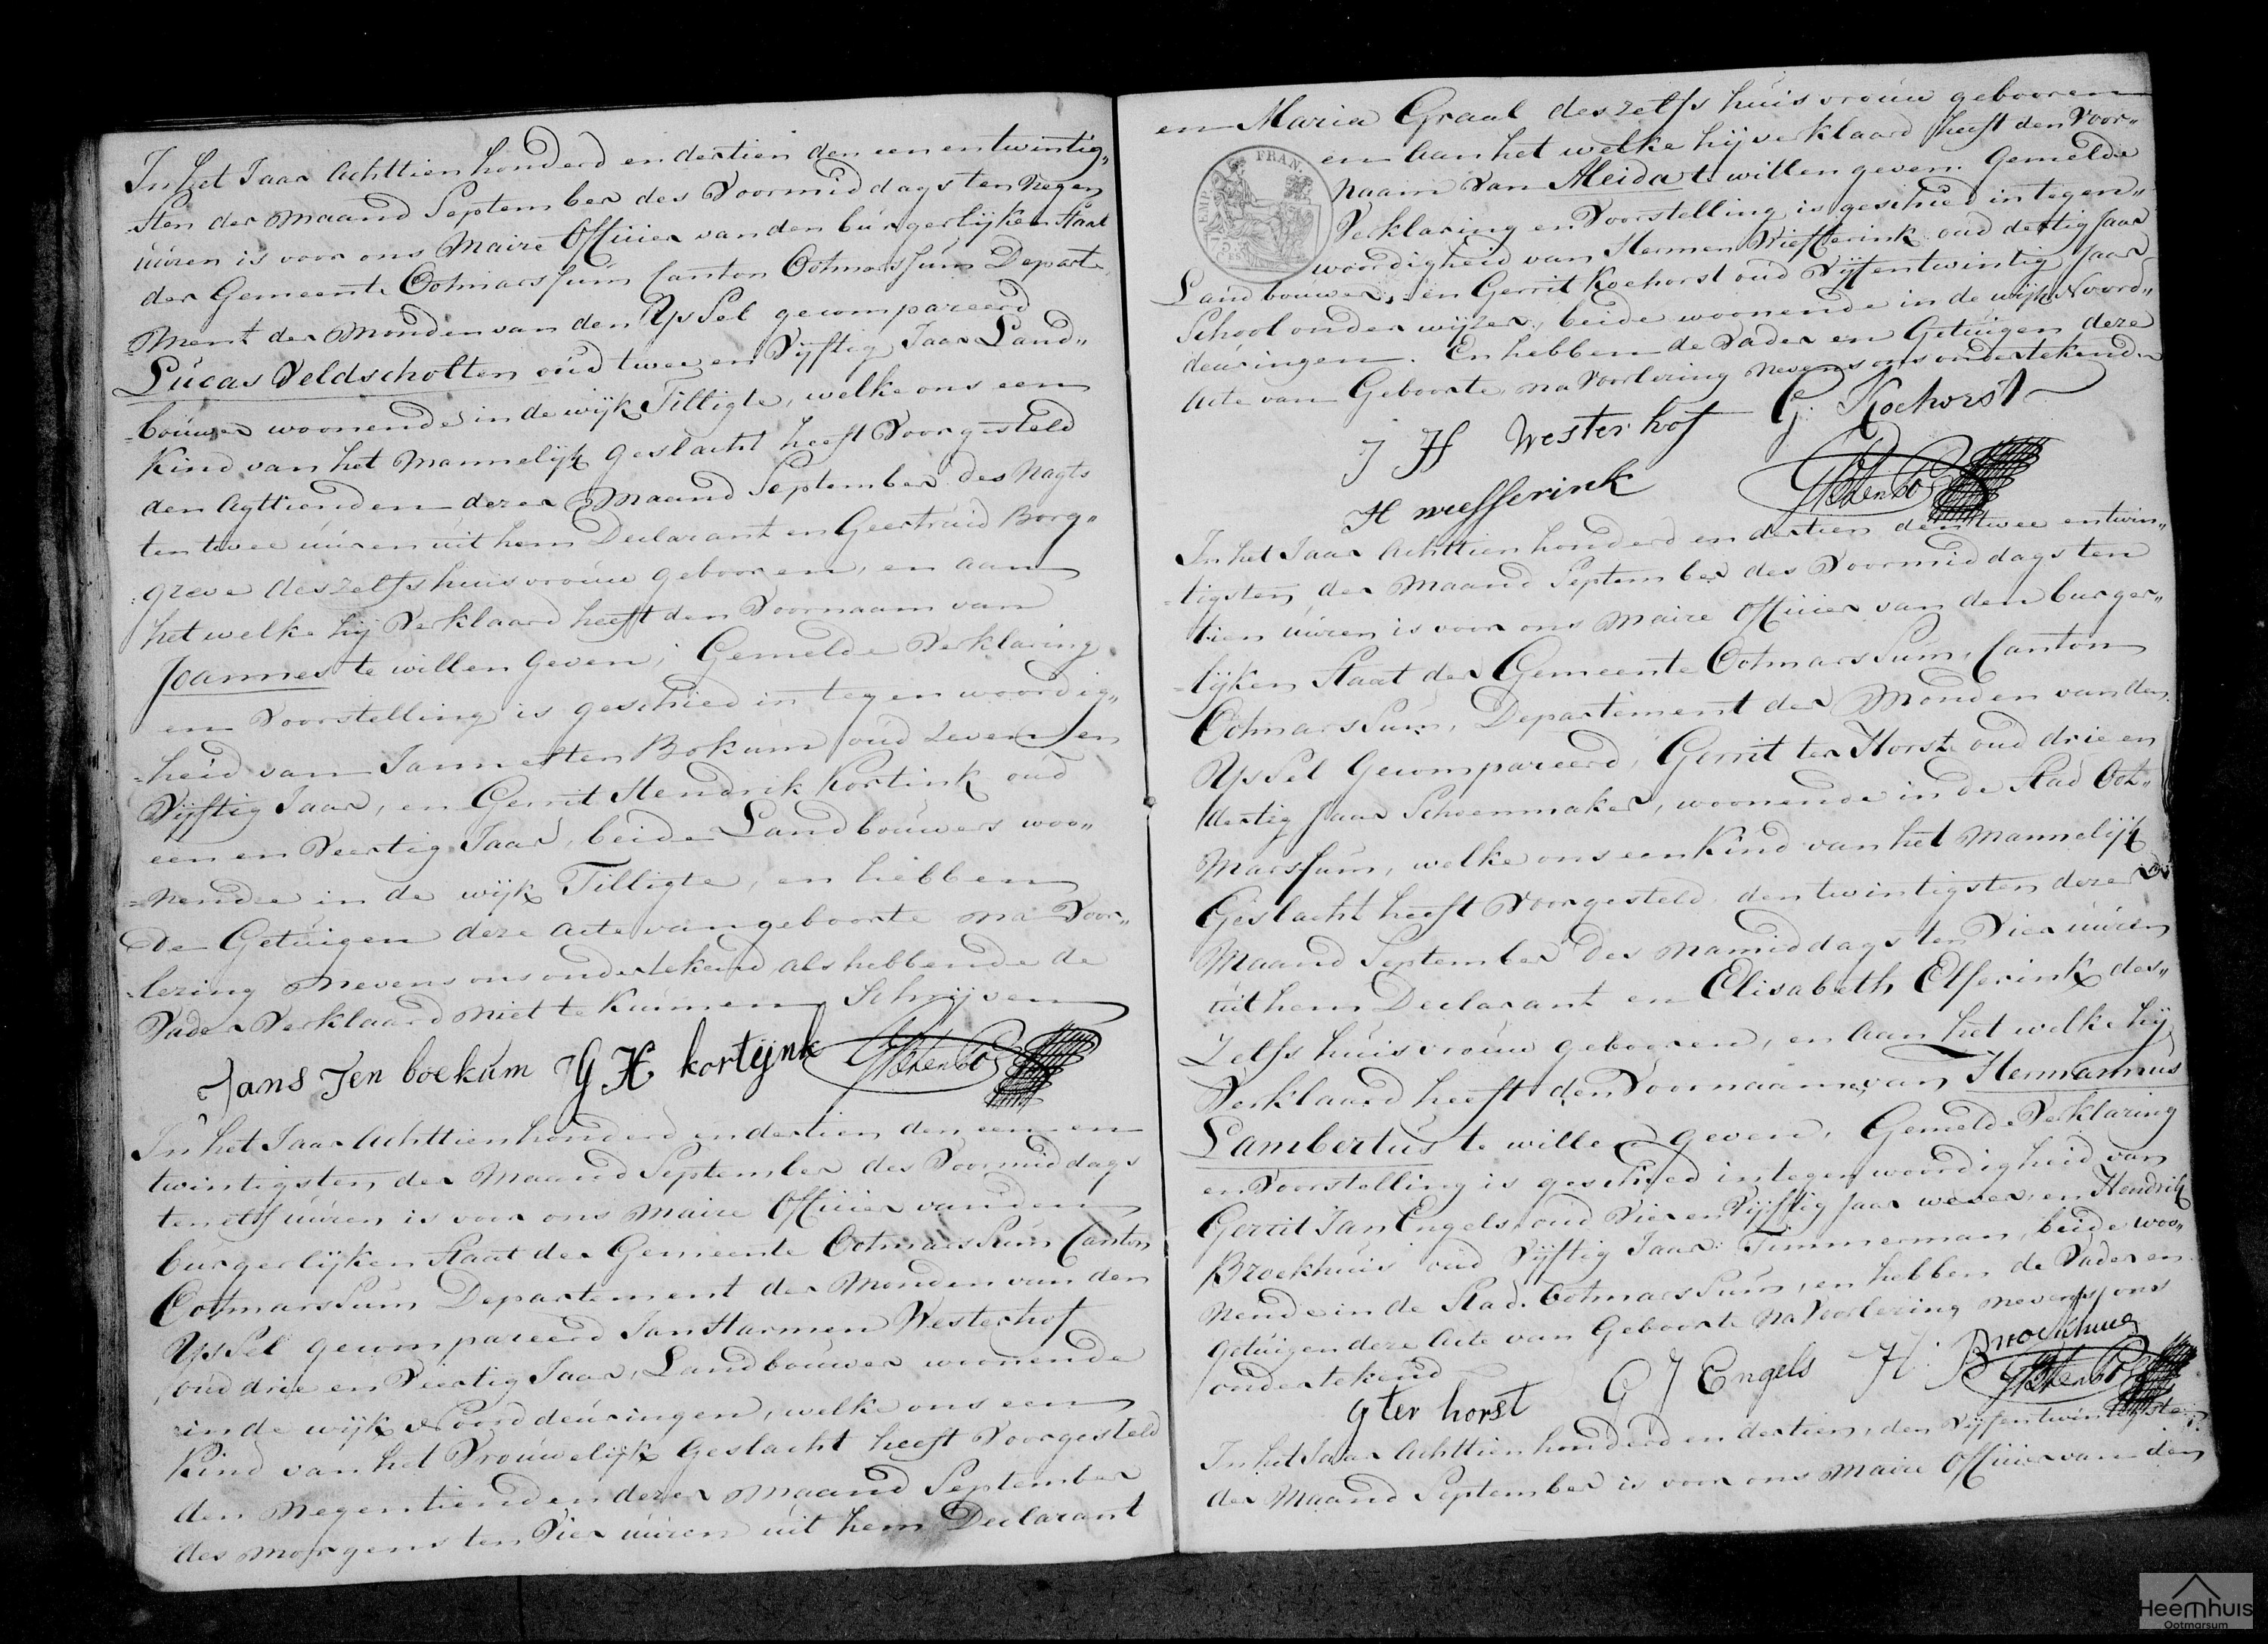 In het Jaar Achttien honderd en dertien den een en twintig„
sten der Maand September des Voormiddags ten Negen
uuren is voor ons Maire Officier van den burgerlijken Staat
der Gemeente Ootmarssum Canton Ootmarssum Departe„
ment der Monden van den Yssel gecompareerd
Lucas Veldscholten oud twee en Vijftig Jaar Land„
=bouwer woonende in de wijk Tilligte, welke ons een
Kind van het Mannelijk Geslacht heeft Voorgesteld
den Agttienden dezer Maand September des Nagts
ten twee uuren uit hem Declarant en Geertruid Borg„
:greve deszelfs huisvrouw gebooren, en aan
het welke hij Verklaard heeft den Voornaam van
Joannes te willen Geven; Gemelde Verklaring
en Voorstelling is geschied in tegenwoordig„
=heid van Jannes ten Bokum oud Zeven en
Vijftig Jaar, en Gerrit Hendrik Kortink oud
een en Veertig Jaar, beide Landbouwers woo„
=nende in de wijk Tilligte, en hebben
de Getuigen deze Acte van geboorte na Voor„
lezing nevens ons ondertekend als hebbende de
Vader Verklaard niet te Kunnen Schrijven
Jans Ten boekum G H kortijnk
In het Jaar Achttien honderd en dertien den een en
twintigsten der Maand September des Voormiddags
ten elf uuren is voor ons Maire Officier van den
burgerlijken Staat der Gemeente Ootmarssum Canton
Ootmarssum Departement der Monden van den
Yssel gecompareerd Jan Harmen Westerhof
oud drie en Veertig Jaar, Landbouwer woonende
in de wijk Noorddeuringen, welke ons een
Kind van het Vrouwelijk Geslacht heeft Voorgesteld
den Negentienden dezer Maand September
des Morgens ten Vier uuren uit hem Declarant
en Maria Graal deszelfs huisvrouw gebooren
EMP. FRAN.
75 CES
en Aan het welke hij verklaard heeft den Voor„
naam Van Aleida te willen geven. Gemelde
Verklaring en Voorstelling is geschied in tegen„
woordigheid van Hermen Wiefferink oud dertig Jaar
Landbouwer, en Gerrit Koehorst oud Vijfentwintig Jaar
School onderwijzer, beide woonende in de wijk Noord„
deuringen. En hebben de Vader en Getuigen deze
Acte van Geboorte na Voorlezing nevens ons ondertekend
J H Westerhof G. Koehorst
H wiefferink
In het Jaar Achttien honderd en dertien den twee entwin„
=tigsten der Maand September des Voormiddags ten
tien uuren is voor ons Maire Officier van den burger„
=lijken Staat der Gemeente Ootmarssum, Canton
Ootmarssum, Departement der Monden van den
Yssel Gecompareerd, Gerrit ter Horst oud drie en
dertig Jaar Schoenmaker, woonende in de Stad Oot„
Marssum, welke ons een Kind van het Mannelijk
Geslacht heeft Voorgesteld, den twintigsten dezer
Maand September des Namiddags ten Vier uuren
uit hem Declarant en Elisabeth Elferink des„
Zelfs huisvrouw gebooren, en Aan het welke hij
Verklaard heeft den Voornaam van Hermannus
Lambertus te willen geven, Gemelde Verklaring
en Voorstelling is geschied in tegenwoordigheid van
Gerrit Jan Engels oud Vier en Vijftig Jaar wever, en Hendrik
Broekhuis oud Vijftig Jaar Timmerman, beide woo„
nende in de Stad Ootmarssum, en hebben de Vader en
getuigen deze Acte van Geboorte Na Voorlezing nevens ons
ondertekend
G ter horst G J Engels H. Broekhuis
In het Jaar Achttien honderd en dertien, den Vijfentwintigsten
der Maand September is voor ons Maire Officier van den
Heemhuis
Ootmarsum